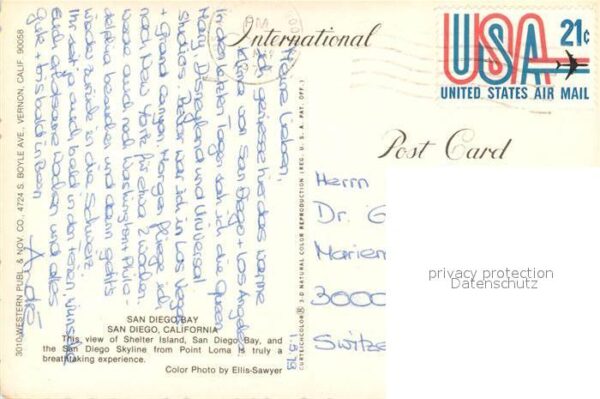 International
Post Card
USA 21c
UNITED STATES AIR MAIL
Meine Lieben,
ich geniesse hier das warme
Klima von San Diego + Los Angeles.
In den letzten Tagen sah ich die Queen
Mary, Disneyland und Universal
Studios. Dafor war ich in Las Vegas
+ Grand Canyon. Morgen fliege ich
nach New York für etwa 2 Wochen
werde auch noch Washington, Phila-
delphia besuchen und dann geht's
wieder zurück in die Schweiz.
Ihr seid ja auch bald in den Ferien,
Euch erholsame Wochen und alles
Gute + bis bald in Bern
André
1.5.73
Herrn
Dr. G
Marien
3000
Switze
privacy protection
Datenschutz
SAN DIEGO BAY
SAN DIEGO, CALIFORNIA
This view of Shelter Island, San Diego Bay, and
the San Diego Skyline from Point Loma is truly a
breathtaking experience.
Color Photo by Ellis-Sawyer
3010 WESTERN PUBL. & NOV. CO., 4724 S. BOYLE AVE., VERNON, CALIF. 90058
CURTEICHCOLOR® 3-D NATURAL COLOR REPRODUCTION (REG. U.S.A. PAT. OFF.)